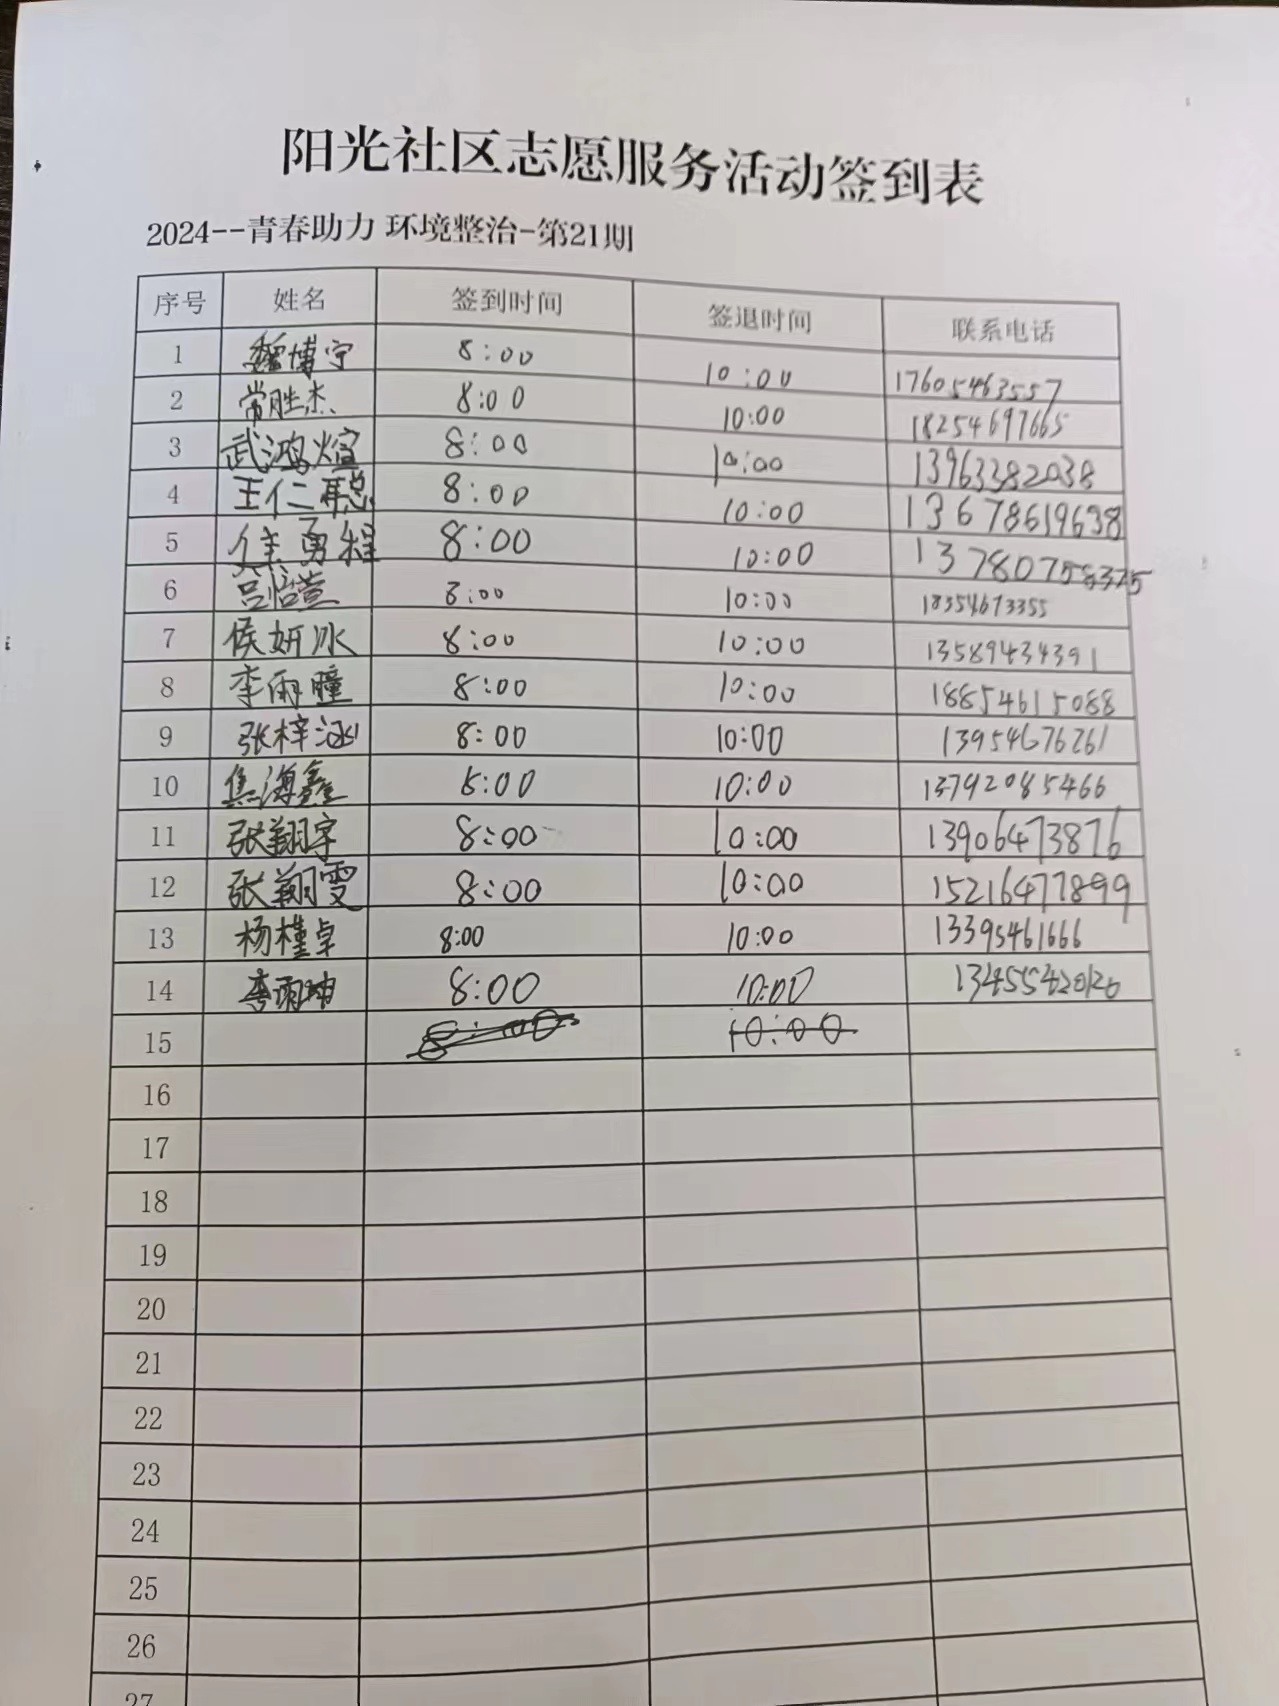 阳光社区志愿服务活动签到表
2024--青春助力 环境整治-第21期
序号 姓名 签到时间 签退时间 联系电话
1 魏博宁 8:00 10:00 17605463557
2 常胜杰 8:00 10:00 18254697665
3 武鸿煊 8:00 10:00 13963382038
4 王仁聪 8:00 10:00 13678619638
5 勇程 8:00 10:00
6 吕怡萱 8:00 10:00 18354673355
7 侯妍冰 8:00 10:00 13589434391
8 李雨瞳 8:00 10:00 18854615088
9 张梓涵 8:00 10:00 13954676261
10 焦海鑫 8:00 10:00 13792085466
11 张翔宇 8:00 10:00 13906473876
12 张翔雯 8:00 10:00 15216477899
13 杨槿卓 8:00 10:00 13395461666
14 李雨坤 8:00 10:00
15 8:00 10:00
16
17
18
19
20
21
22
23
24
25
26
27